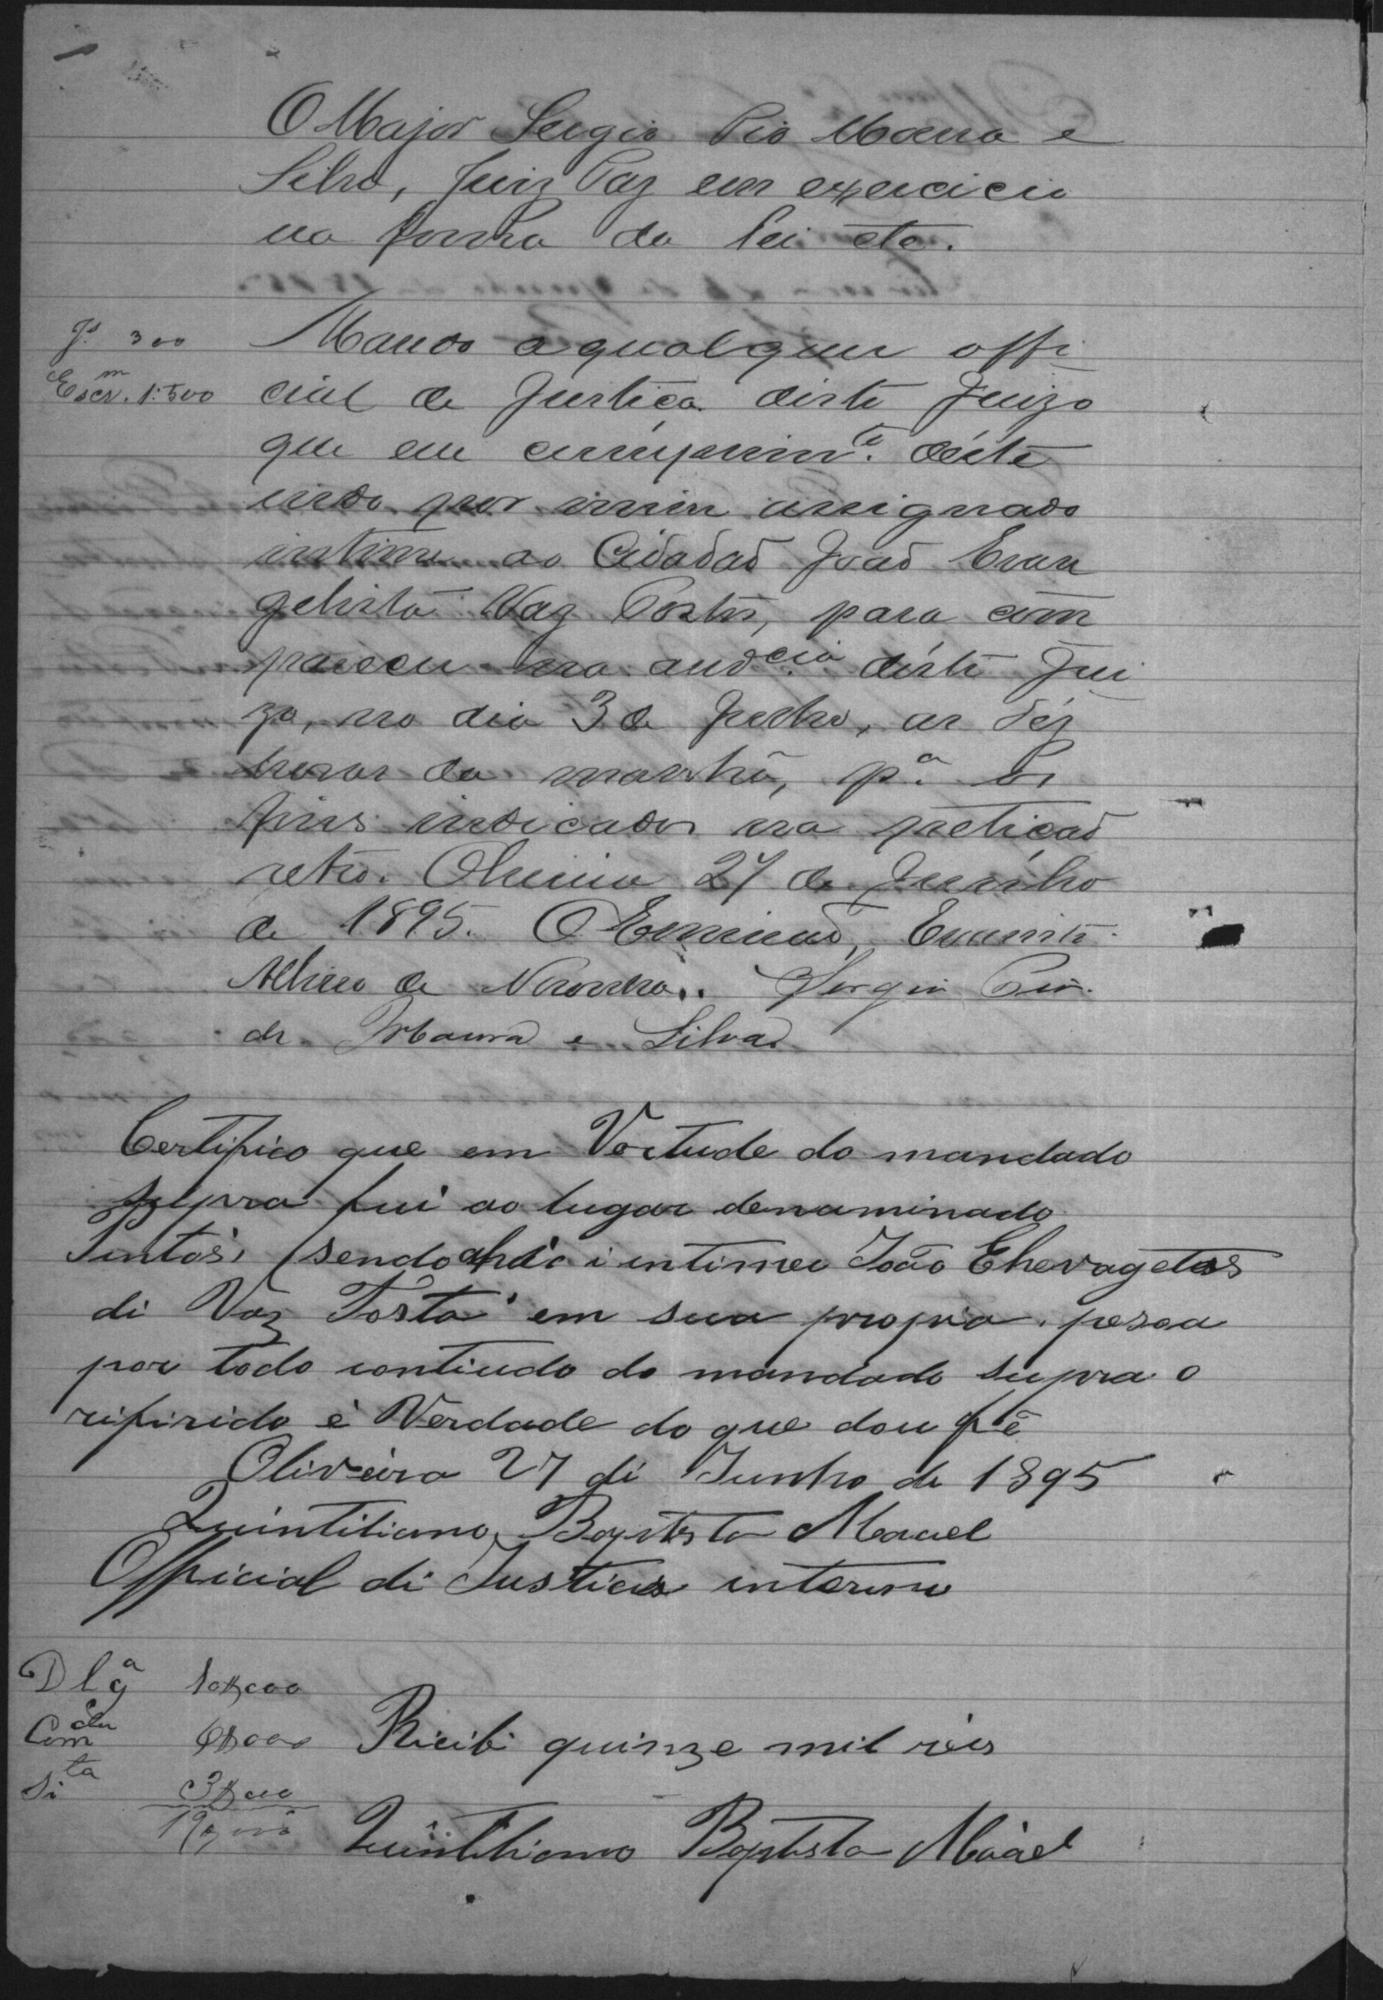 O Major Sergio Pio Moura e
Silva, Juiz Paz em exercicio
na forma da Lei etc.
Js 300
Mando a qualquer offi
Escrm. 1:500
cial de Justiça deste Juizo
que em cumprimto. deste
indo por mim assignado
intime ao Cidadaõ Joaõ Evan
gelista Vaz Tostes, para com
parecer na audcia. deste Jui
zo, no dia 3 de Julho, as déz
horas da manhã, pa. os
fins indicados na petiçaõ
retro. Oliveira 27 de Junho
de 1895. O Escrivaõ, Evaristo
de Noronha. Sergio Pio
de Moura e Silva
Certifico que em Vertude do mandado
supra fui ao lugar denuminado
sendo ahi i intimei João
di Vaz Tosta em sua propria pesoa
por todo contiudo do mandado supra o
rifirido é Verdade do que dou fé
Oliveira 27 di Junho de 1895
Quintiliano Baptista Maciel
Official di Justica interino
Dlga 10$000
Comdcu 6$000 Ricibi quinze mil reis
Sita 3$000
19,000
Quintiliano Baptista Maciel